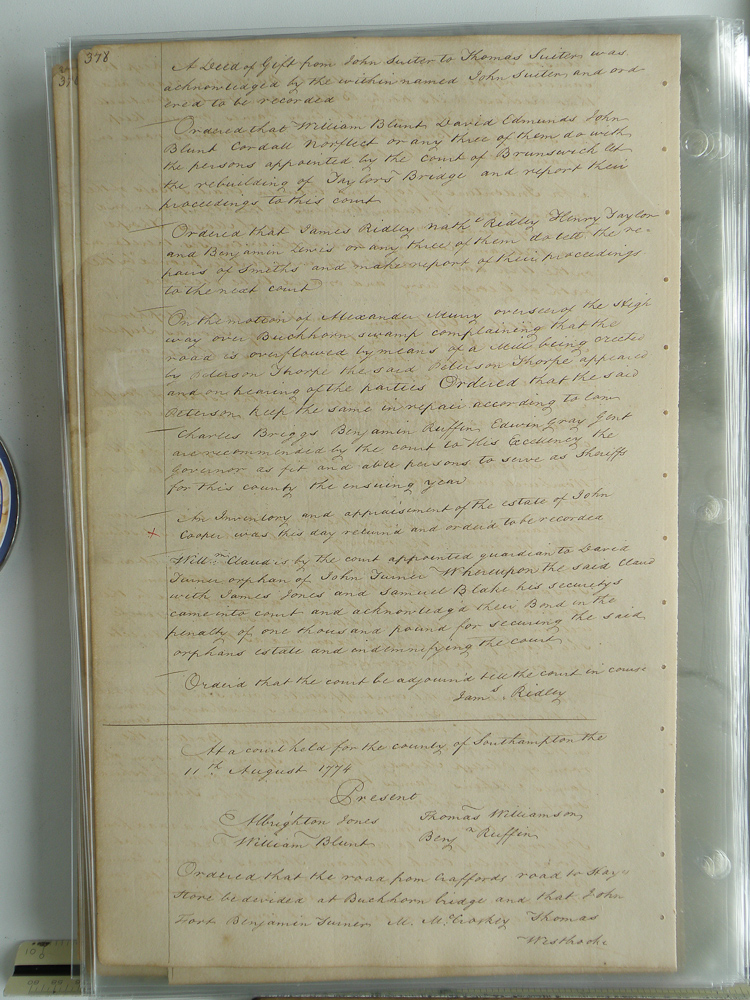 378
A Deed of Gift from John Suiter to Thomas Suiter was
acknowledged by the within named John Suiter and ord
ered to be recorded
Ordered that William Blunt David Edmunds John
Blunt Cordall Norflect or any three of them do with
the persons appointed by the court of Brunswick let
the rebuilding of Taylors Bridge and report their
proceedings to this court
Ordered that James Ridley Nathl Ridley Henry Taylor
and Benjamin Lewis or any three of them do let the re-
pairs of Smiths and make report of their proceedings
to the next court
On the motion of Alexander Murry overseer of the High
way over Buckhorn swamp complaining that the
road is overflowed by means of a Mill being erected
by Peterson Thorpe the said Peterson Thorpe appeared
and on hearing of the parties Ordered that the said
Peterson keep the same in repair according to law
Charles Briggs Benjamin Ruffin Edwin Gray Gent
are recommended by the court to His Excellency the
Governor as fit and able persons to serve as Sheriffs
for this county the ensuing year
An Inventory and appraisement of the estate of John
Cooper was this day returnd and orderd to be recorded
Willm Claud is by the court appointed guardian to David
Turner orphan of John Turner Whereupon the said Claud
with James Jones and Samuel Blake his securitys
came into court and acknowledged their Bond in the
penalty of one thousand pound for securing the said
orphans estate and indemnifying the court
Orderd that the court be adjournd till the court in course
Jams. Ridley
At a court held for the county of Southampton the
11th August 1774
Present
Albrighton Jones Thomas Williamson
William Blunt Benjn Ruffin
Ordered that the road from Craffords road to Hays
Store be divided at Buckhorn bridge and that John
Fort Benjamin Turner M. McCroskey Thomas
Westbrooke